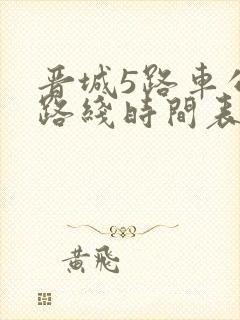 晋城5路車
路綫時間表
黄飛